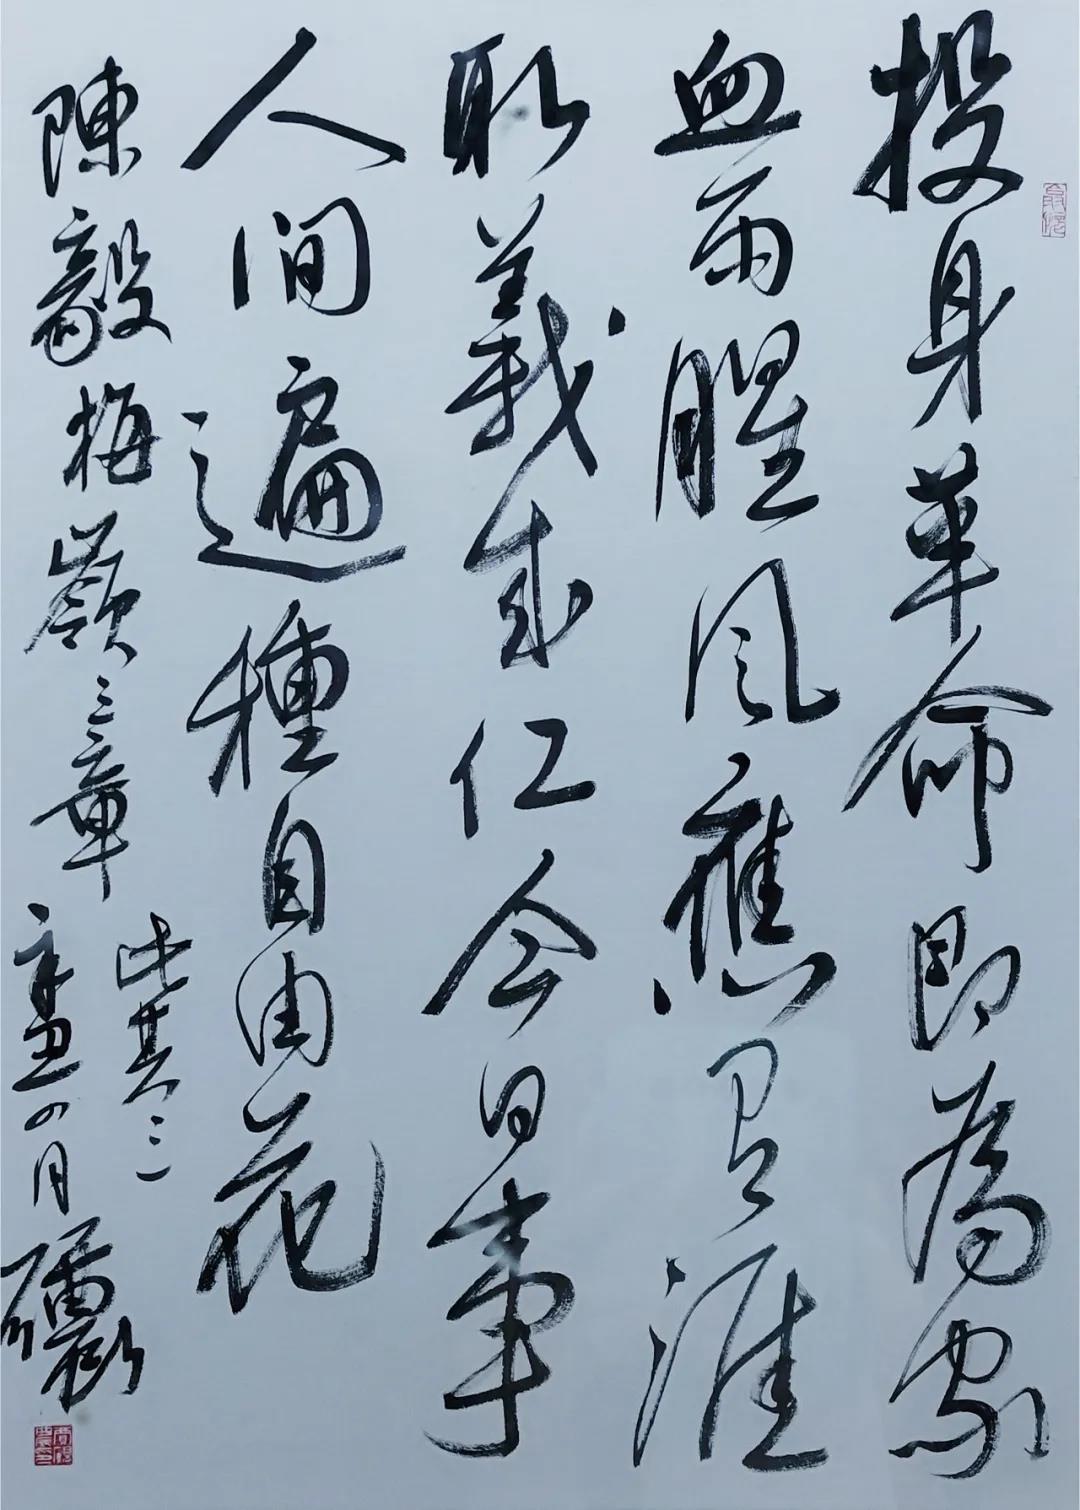 投身革命即為家
血雨腥風應有涯
取義成仁今日事
人間遍種自由花
陳毅梅嶺三章
此其三
辛丑四月